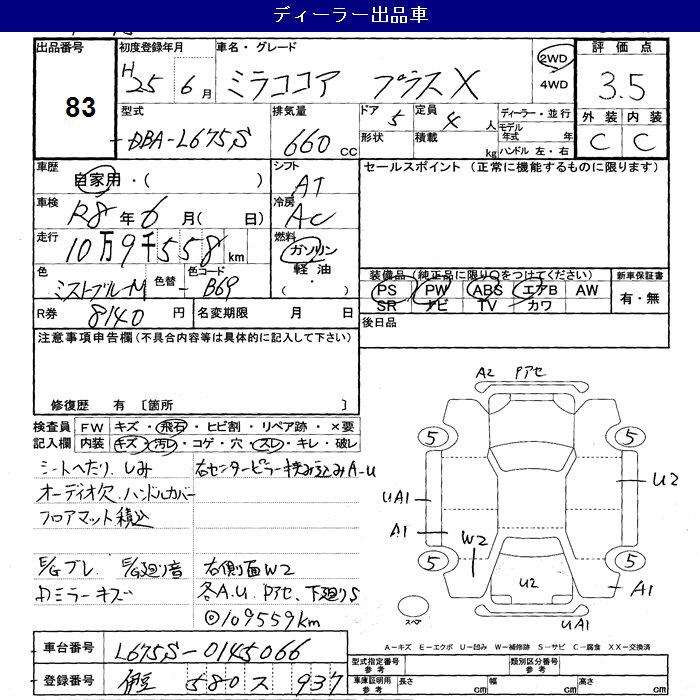 ディーラー出品車
出品番号
83
初度登録年月
H25年6月
車名・グレード
ミラココア プラスX
2WD
4WD
評価点
3.5
外装 内装
C C
型式
DBA-L675S
排気量
660 cc
ドア 5
定員 4 人
形状
積載 kg
ディーラー・並行
モデル年式 年
ハンドル 左・右
車歴
自家用・( )
シフト
AT
セールスポイント (正常に機能するものに限ります)
車検
R8年6月( 日)
冷房
AC
走行
10万9千558km
燃料
ガソリン
軽油・
( )
色
ミストブルーM
色替
-
色コード
B69
装備品 (純正品に限り○をつけてください)
PS PW ABS エアB AW
SR ナビ TV カワ
新車保証書
有・無
R券 8140 円
名変期限 月 日
後日品
注意事項申告欄 (不具合内容等は具体的に記入して下さい)
修復歴 有 〔箇所 〕
検査員記入欄
FW キズ・飛石・ヒビ割・リペア跡・×要
内装 キズ・汚レ・コゲ・穴・スレ・キレ・破レ
シートへたり、しみ
オーディオ欠、ハンドルカバー
フロアマット積込
右センターピラー挟み込みA・U
E/Gブレ E/G廻り音
右側面W2
各A.U. Pアセ、下廻りS
◎109559km
A2 Pアセ
5 5
UA1
U2
A1
W2
5 5
U2
A1
スペア
UA1
A－キズ E－エクボ U－凹み W－補修跡 S－サビ C－腐食 XX－交換済
車台番号 L675S-0145066
登録番号 580 ス 937
型式指定番号 参考
類別区分番号 参考
車庫証明用 参考
長さ cm
幅 cm
高さ cm